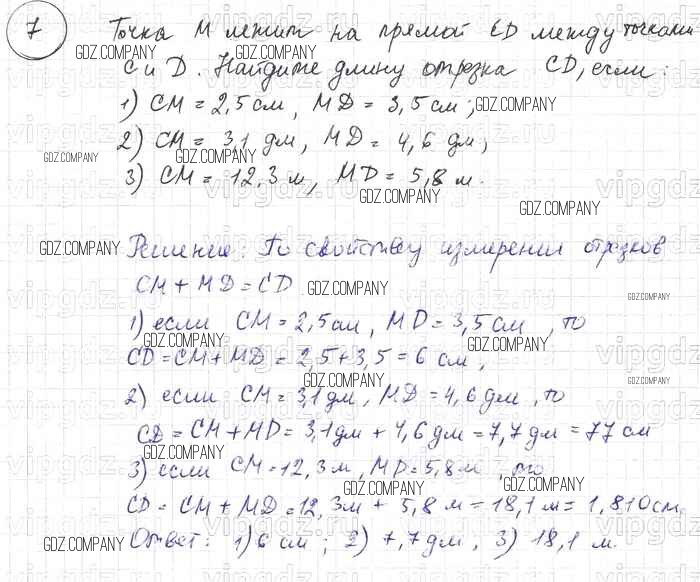 7 Точка M лежит на прямой CD между точками
C и D. Найдите длину отрезка CD, если:
1) CM = 2,5 см, MD = 3,5 см;
2) CM = 3,1 дм, MD = 4,6 дм;
3) CM = 12,3 м, MD = 5,8 м.
Решение: По свойству измерения отрезков
CM + MD = CD
1) если CM = 2,5 см, MD = 3,5 см, то
CD = CM + MD = 2,5 + 3,5 = 6 см,
2) если CM = 3,1 дм, MD = 4,6 дм, то
CD = CM + MD = 3,1 дм + 4,6 дм = 7,7 дм = 77 см
3) если CM = 12,3 м, MD = 5,8 м, то
CD = CM + MD = 12,3 м + 5,8 м = 18,1 м = 1,810 см.
Ответ: 1) 6 см; 2) 7,7 дм, 3) 18,1 м.